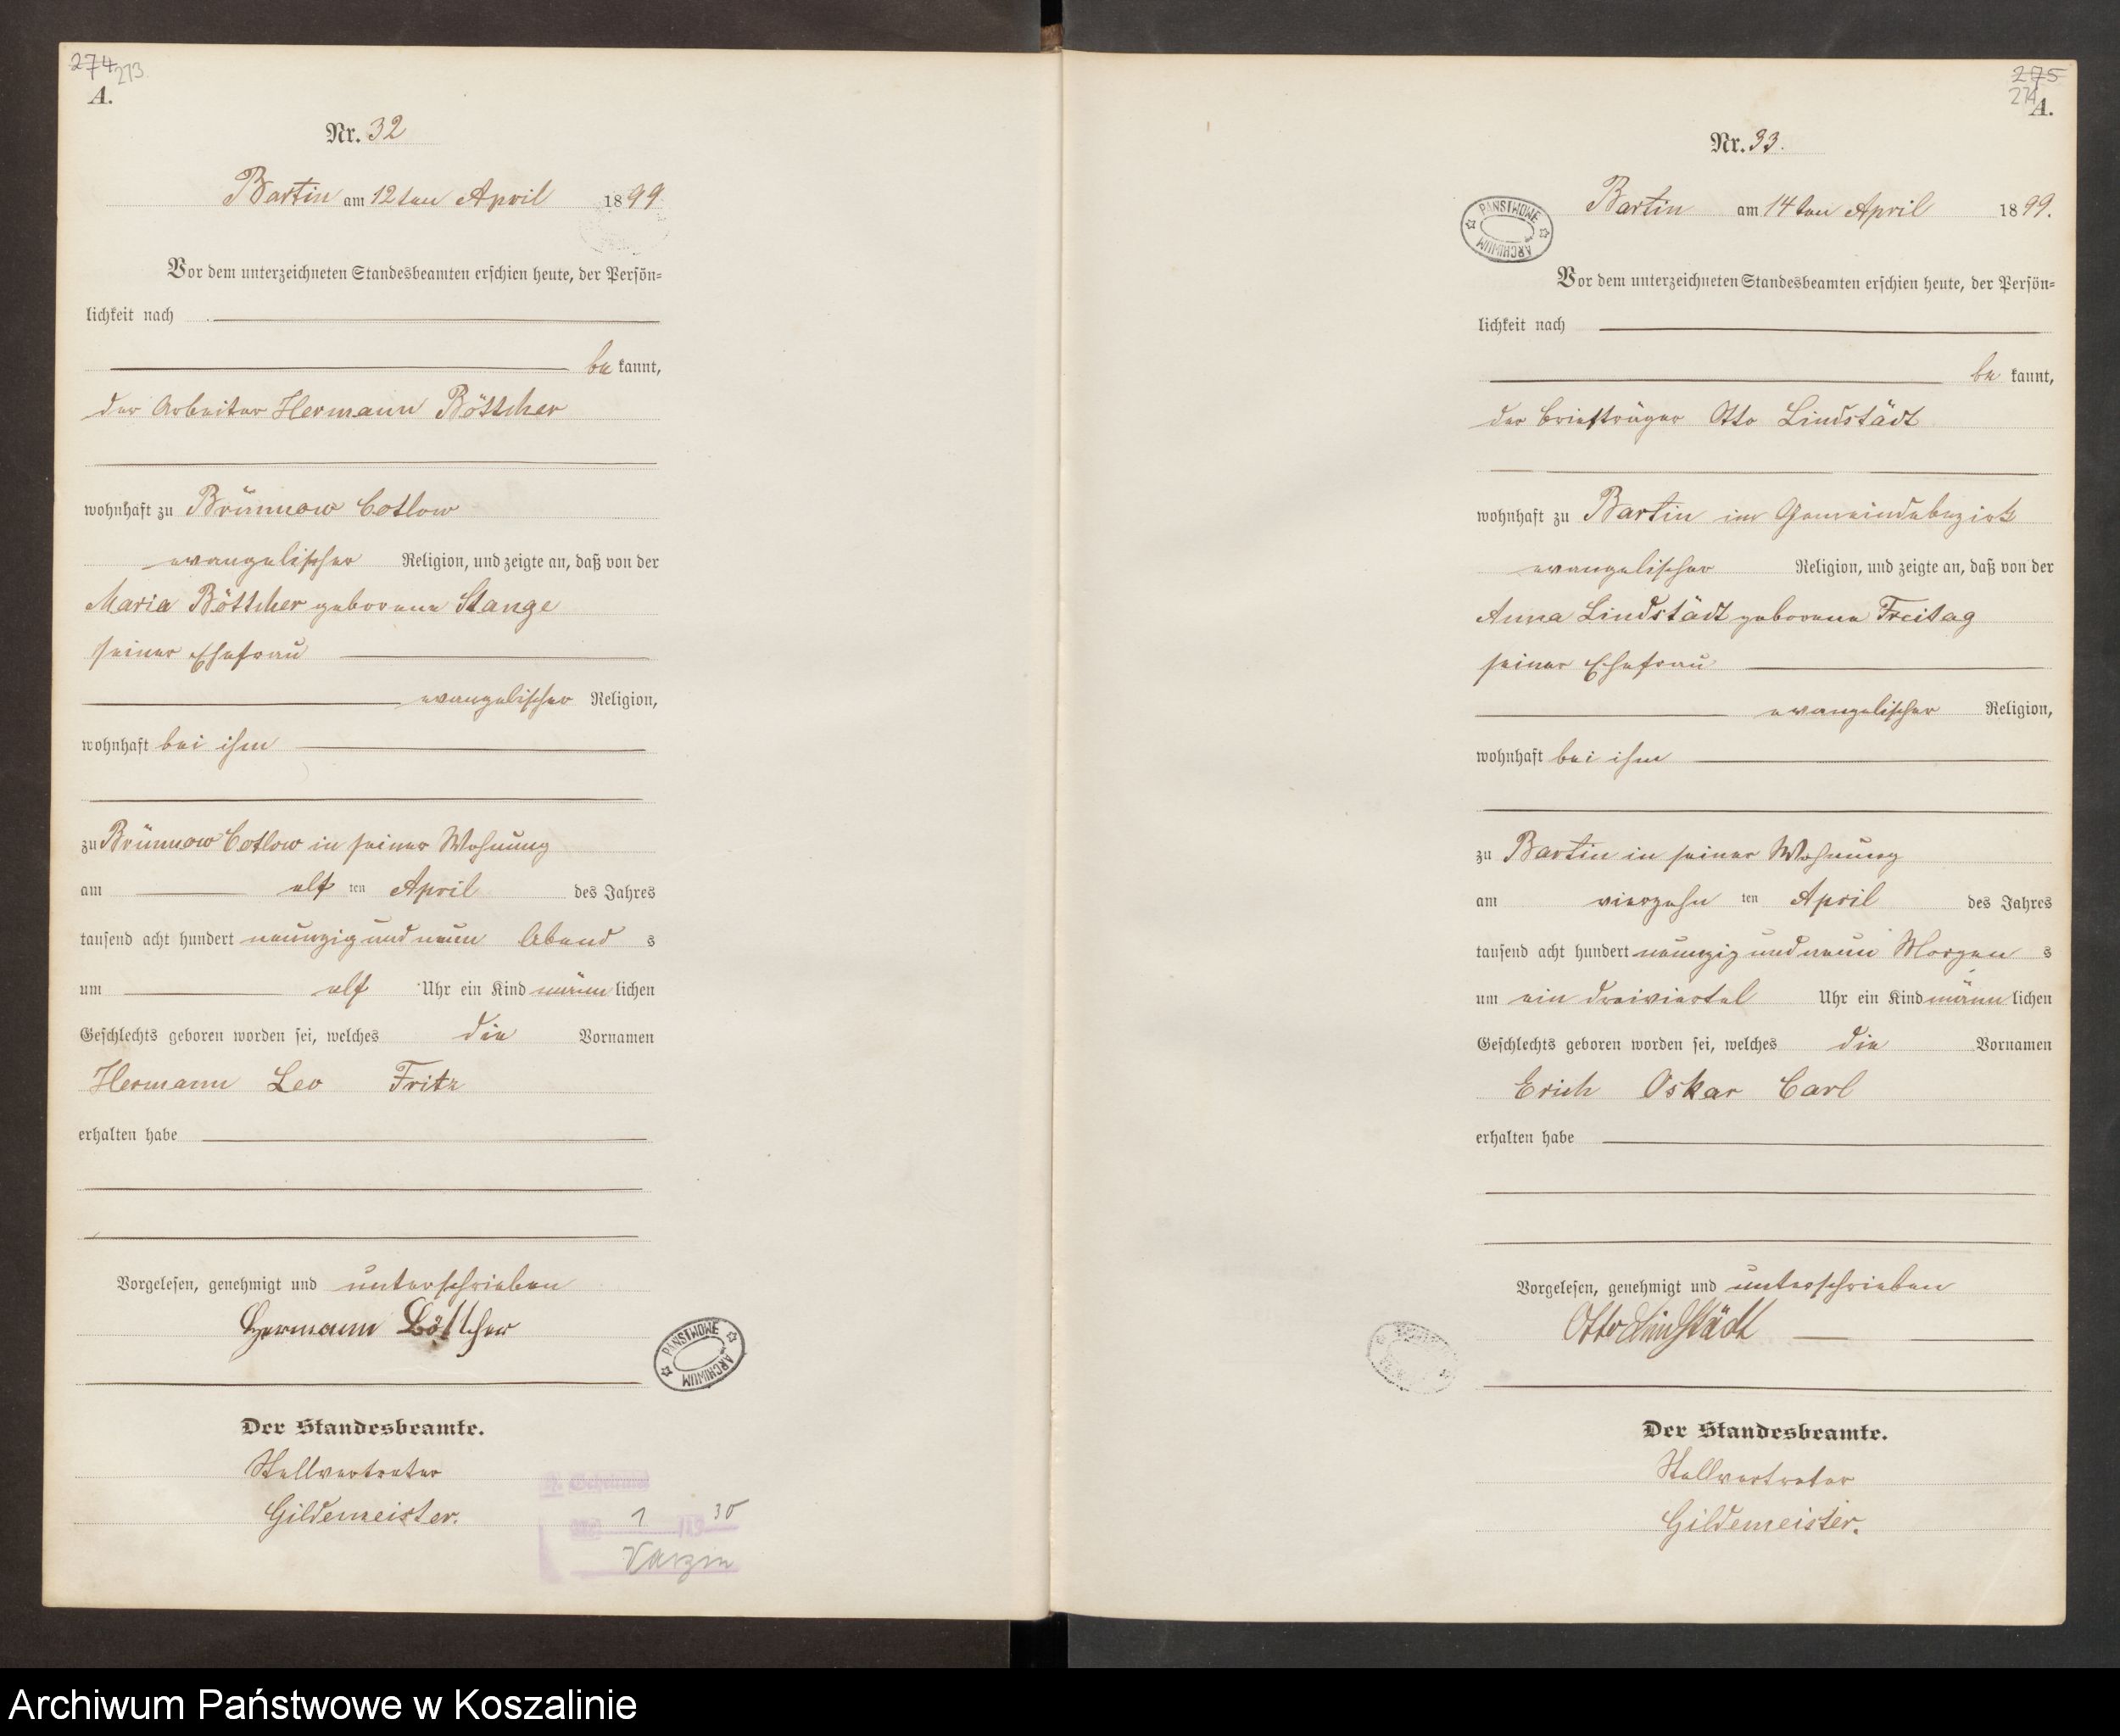 274 273
A.
Nr. 32
Bartin am 12ten April 1899
Vor dem unterzeichneten Standesbeamten erschien heute, der Persön=
lichkeit nach
be kannt,
der Arbeiter Hermann Böttcher
wohnhaft zu Brünnow Cotlow
evangelischer Religion, und zeigte an, daß von der
Maria Böttcher geborene Stange
seiner Ehefrau
evangelischer Religion,
wohnhaft bei ihm
zu Brünnow Cotlow in seiner Wohnung
am elf ten April des Jahres
tausend acht hundert neunzig und neun Abend s
um elf Uhr ein Kind männ lichen
Geschlechts geboren worden sei, welches die Vornamen
Hermann Leo Fritz
erhalten habe
Vorgelesen, genehmigt und unterschrieben
Hermann Böttcher
PAŃSTWOWE ARCHIWUM
Der Standesbeamte.
Stellvertreter
Gildemeister.
1 30
Varzin
275
274
A.
Nr. 33.
PAŃSTWOWE ARCHIWUM
Bartin am 14ten April 1899.
Vor dem unterzeichneten Standesbeamten erschien heute, der Persön=
lichkeit nach
be kannt,
der Briefträger Otto Lindstädt
wohnhaft zu Bartin im Gemeindebezirk
evangelischer Religion, und zeigte an, daß von der
Anna Lindstädt geborene Freitag
seiner Ehefrau
evangelischer Religion,
wohnhaft bei ihm
zu Bartin in seiner Wohnung
am vierzehn ten April des Jahres
tausend acht hundert neunzig und neun Morgen s
um ein dreiviertel Uhr ein Kind männ lichen
Geschlechts geboren worden sei, welches die Vornamen
Erich Oskar Carl
erhalten habe
Vorgelesen, genehmigt und unterschrieben
Otto Lindstädt
Der Standesbeamte.
Stellvertreter
Gildemeister.
Archiwum Państwowe w Koszalinie